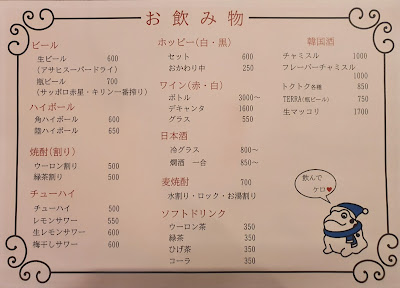 お飲み物
ビール
生ビール 600
(アサヒスーパードライ)
瓶ビール 700
(サッポロ赤星・キリン一番搾り)
ハイボール
角ハイボール 600
陸ハイボール 650
焼酎(割り)
ウーロン割り 500
緑茶割り 500
チューハイ
チューハイ 500
レモンサワー 550
生レモンサワー 600
梅干しサワー 600
ホッピー(白・黒)
セット 600
おかわり中 250
ワイン(赤・白)
ボトル 3000〜
デキャンタ 1600
グラス 550
日本酒
冷グラス 800〜
燗酒 一合 850〜
麦焼酎 700
水割り・ロック・お湯割り
ソフトドリンク
ウーロン茶 350
緑茶 350
ひげ茶 350
コーラ 350
韓国酒
チャミスル 1000
フレーバーチャミスル
1000
トクトク各種 850
TERRA(瓶ビール) 750
生マッコリ 1700
飲んで
ケロ♥